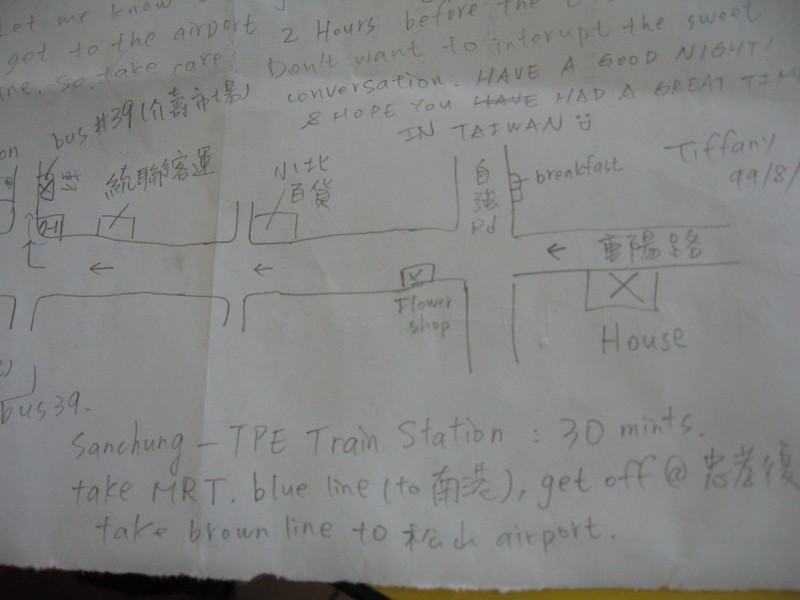 Let me know
get to the airport 2 Hours before the
ine. So take care! Don't want to interupt the sweet
conversation. HAVE A GOOD NIGHT!
& HOPE YOU HAVE HAD A GREAT TIM
IN TAIWAN
Tiffany
99/8/
bus #39 (介壽市場)
on
統聯客運
小北
百貨
自強Rd
breakfast
7-11
重陽路
Flower
shop
House
bus 39.
Sanchung - TPE Train Station : 30 mints.
take MRT. blue line (to 南港), get off @ 忠孝復
take brown line to 松山 airport.